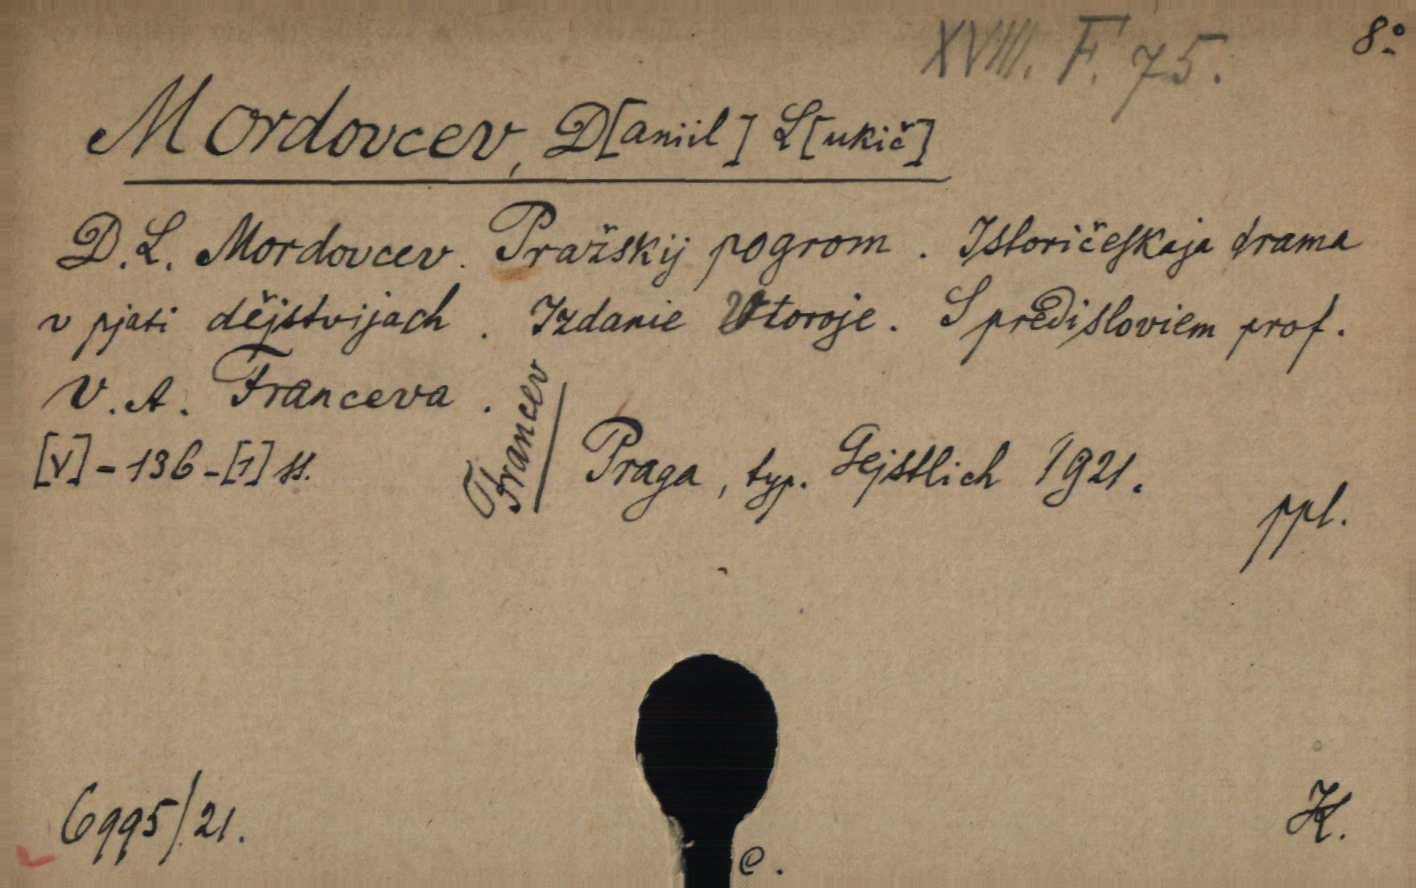 XVIII. F. 75.
8°
Mordovcev, D[aniil] L[ukič]
D. L. Mordovcev. Pražskij pogrom. Istoričeskaja drama
v pjati dějstvijach. Izdanie Vtoroje. S predisloviem prof.
V. A. Franceva.
Francev
[V]-136-[1] ss.
Praga, typ. Gejstlich 1921.
ppl.
6995/21.
K.
e.